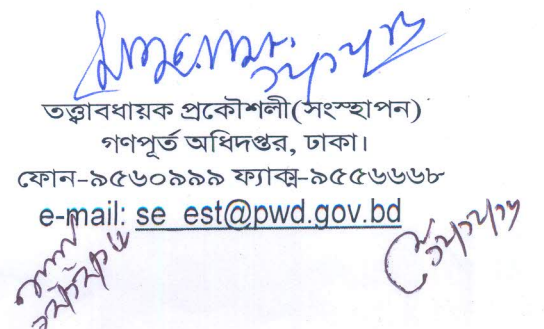 তত্ত্বাবধায়ক প্রকৌশলী(সংস্হাপন)
গণপূর্ত অধিদপ্তর, ঢাকা।
ফোন-৯৫৬০৯৯৯ ফ্যাক্স-৯৫৫৬৬৬৮
e-mail: se_est@pwd.gov.bd